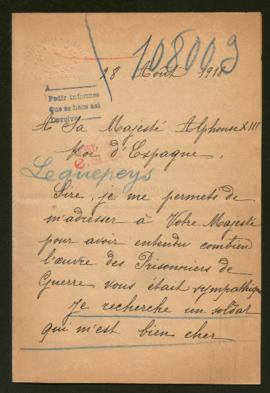 108003
28 Août 191
A
Pedir informes
Que se hace así
A Sa Majesté Alphonse XIII
Roi d'Espagne.
Lequepeys
Sire, je me permets de
m'adresser à Votre Majesté
pour avoir entendu combien
l'œuvre des Prisonniers de
Guerre vous était sympathique
Je recherche un soldat
qui m'est bien cher